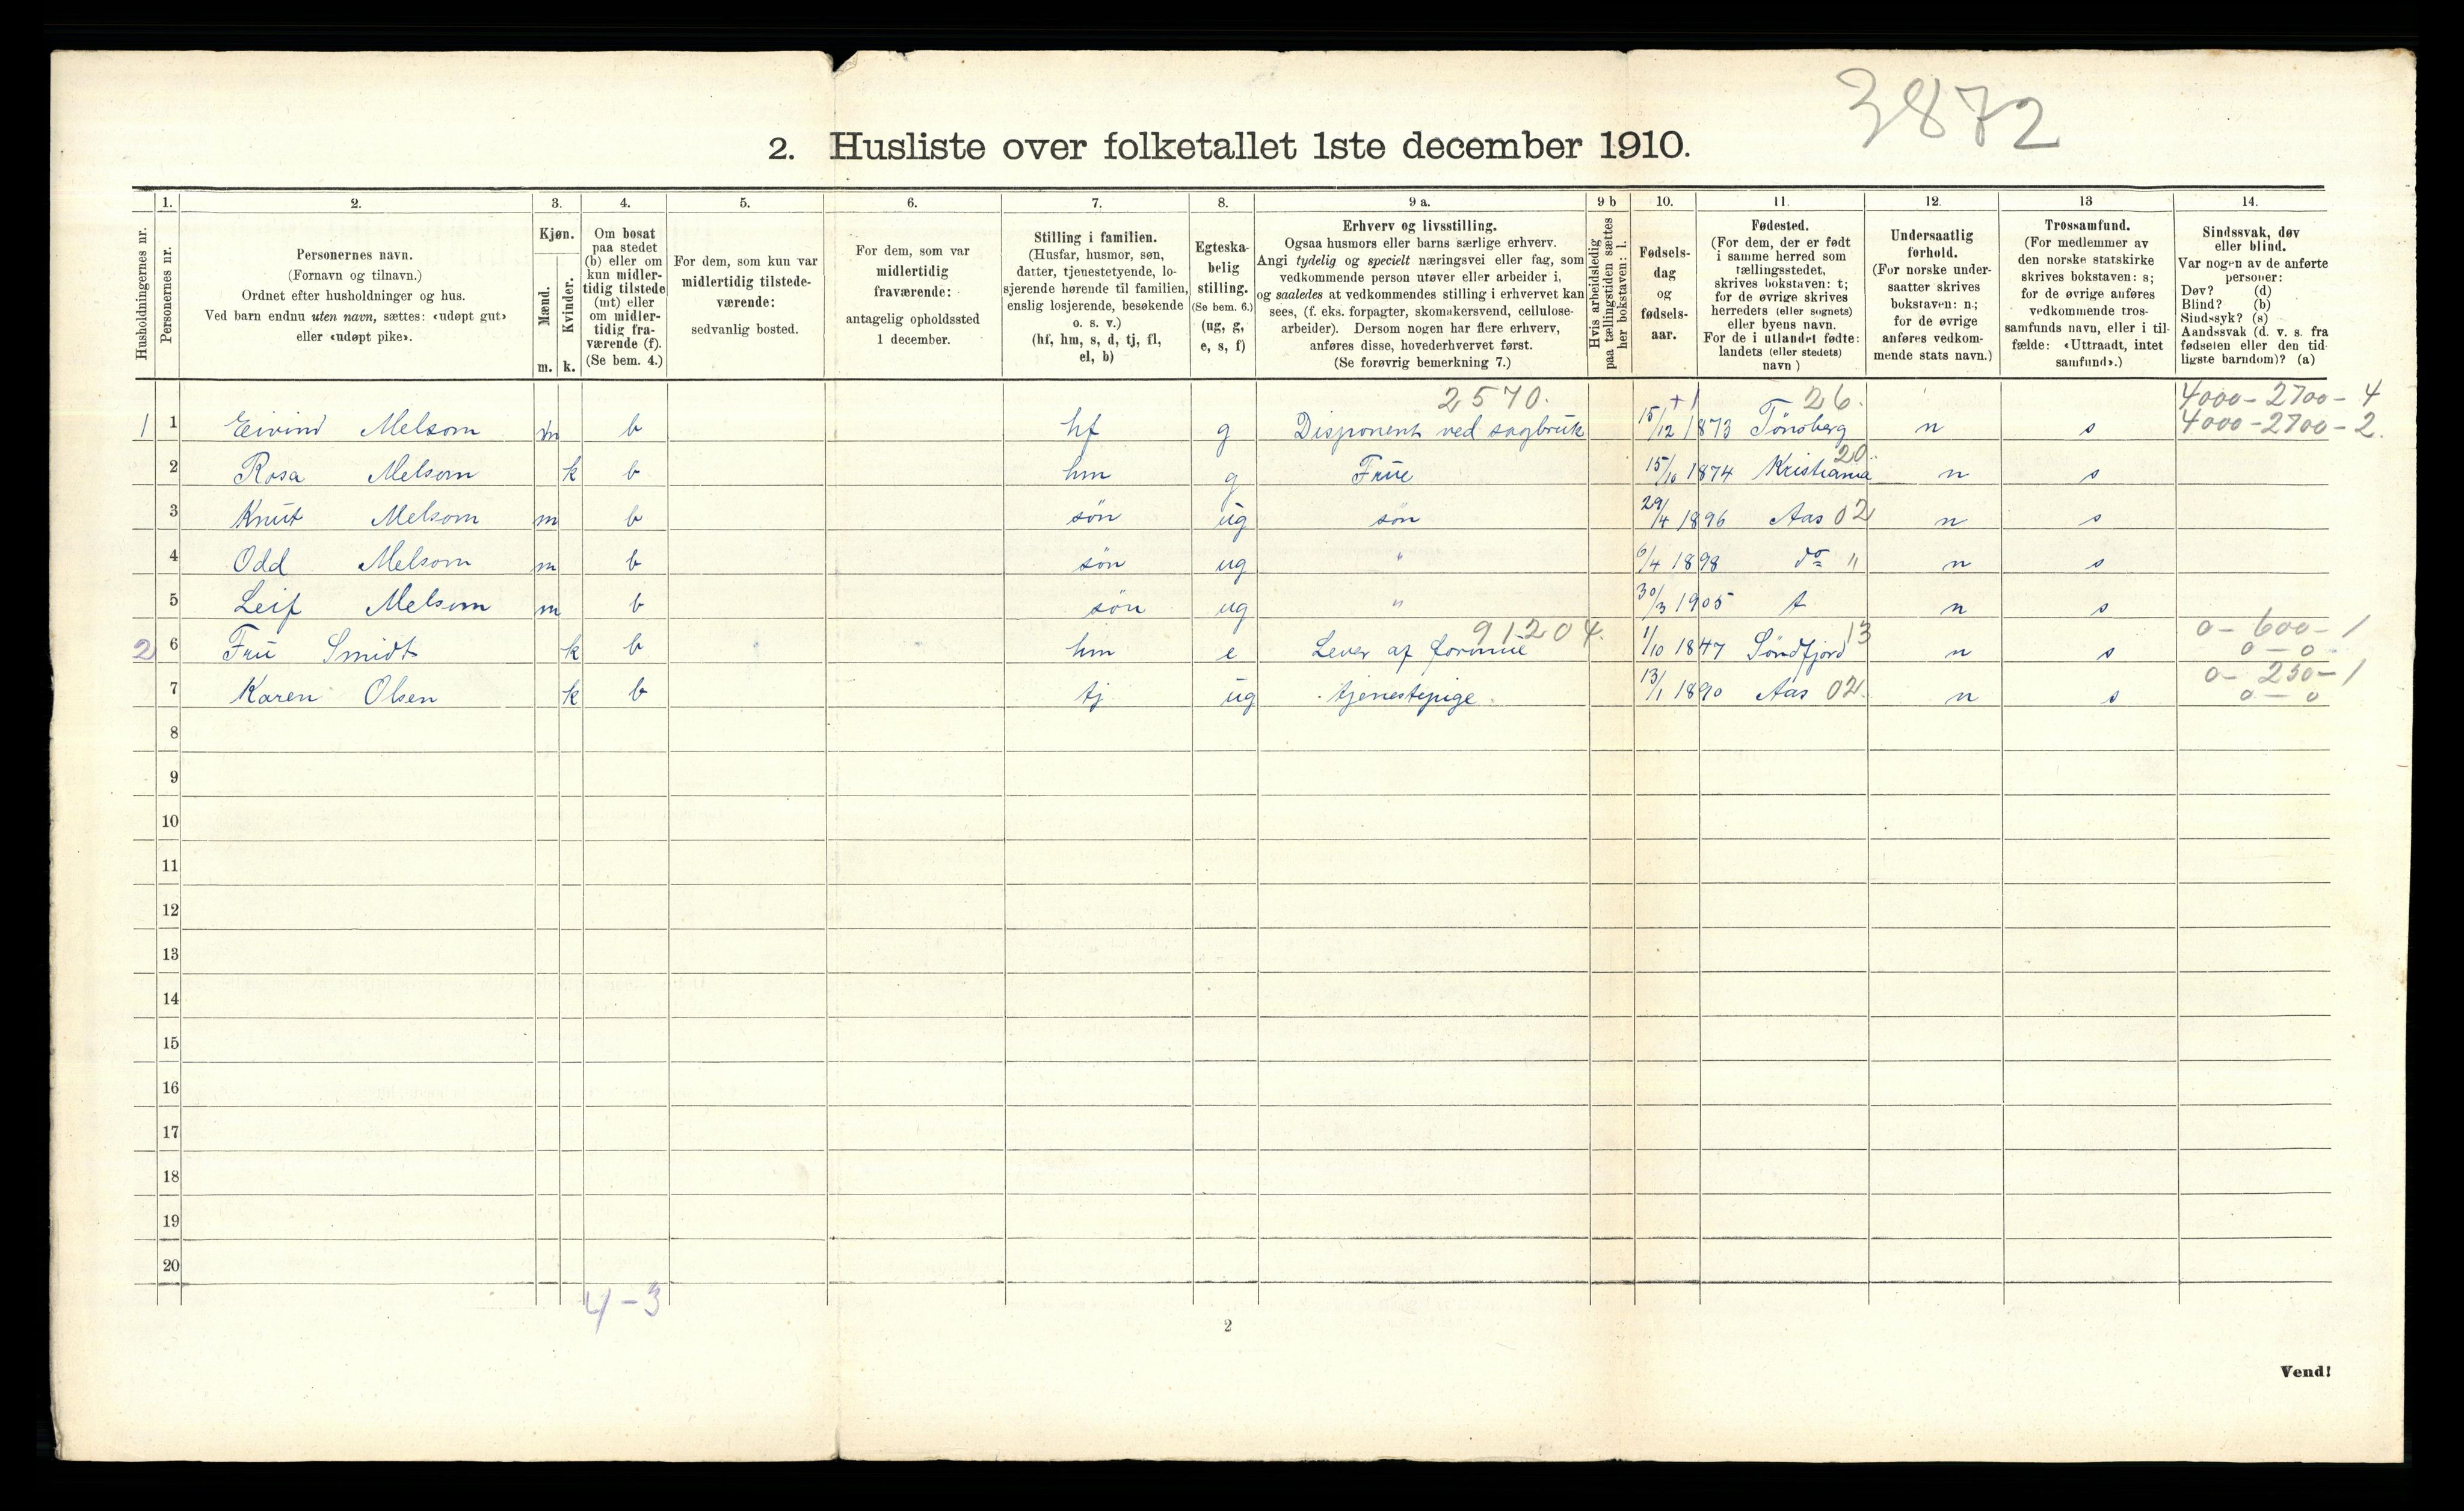 3872
2. Husliste over folketallet 1ste december 1910.
Husholdningernes nr.
1.
Personernes nr.
2.
Personernes navn.
(Fornavn og tilnavn.)
Ordnet efter husholdninger og hus.
Ved barn endnu uten navn, sættes: «udøpt gut»
eller «udøpt pike».
3.
Kjøn.
Mænd.
Kvinder.
m. k.
4.
Om bosat
paa stedet
(b) eller om
kun midler-
tidig tilstede
(mt) eller
om midler-
tidig fra-
værende (f).
(Se bem. 4.)
5.
For dem, som kun var
midlertidig tilstede-
værende:
sedvanlig bosted.
6.
For dem, som var
midlertidig
fraværende:
antagelig opholdssted
1 december.
7.
Stilling i familien.
(Husfar, husmor, søn,
datter, tjenestetyende, lo-
sjerende hørende til familien,
enslig losjerende, besøkende
o. s. v.)
(hf, hm, s, d, tj, fl,
el, b)
8.
Egteska-
belig
stilling.
(Se bem. 6.)
(ug, g,
e, s, f)
9 a.
Erhverv og livsstilling.
Ogsaa husmors eller barns særlige erhverv.
Angi tydelig og specielt næringsvei eller fag, som
vedkommende person utøver eller arbeider i,
og saaledes at vedkommendes stilling i erhvervet kan
sees, (f. eks. forpagter, skomakersvend, cellulose-
arbeider). Dersom nogen har flere erhverv,
anføres disse, hovederhvervet først.
(Se forøvrig bemerkning 7.)
9 b
Hvis arbeidsledig
paa tællingstiden sættes
her bokstaven: l.
10.
Fødsels-
dag
og
fødsels-
aar.
11.
Fødested.
(For dem, der er født
i samme herred som
tællingsstedet,
skrives bokstaven: t;
for de øvrige skrives
herredets (eller sognets)
eller byens navn.
For de i utlandet fødte:
landets (eller stedets)
navn )
12.
Undersaatlig
forhold.
(For norske under-
saatter skrives
bokstaven: n;
for de øvrige
anføres vedkom-
mende stats navn.)
13
Trossamfund.
(For medlemmer av
den norske statskirke
skrives bokstaven: s;
for de øvrige anføres
vedkommende tros-
samfunds navn, eller i til-
fælde: «Uttraadt, intet
samfund».)
14.
Sindssvak, døv
eller blind.
Var nogen av de anførte
personer:
Døv? (d)
Blind? (b)
Sindssyk? (s)
Aandssvak (d. v. s. fra
fødselen eller den tid-
ligste barndom)? (a)
2570. +1 26. 4000-2700-4
1 1 Eivind Melsom m b hf g Disponent ved sagbruk 15/12 1873 Tönsberg n s 4000-2700-2.
20.
2 Rosa Melsom k b hm g Frue 15/10 1874 Kristiania n s
3 Knut Melsom m b sön ug sön 29/4 1896 Aas 02 n s
4 Odd Melsom m b sön ug " 6/4 1898 do " n s
5 Leif Melsom m b sön ug " 30/3 1905 t n s
91204. 13 0-600-1
2 6 Fru Smidt k b hm e Lever af formue 1/10 1847 Söndfjord n s 0-0
0-250-1
7 Karen Olsen k b tj ug tjenestepige. 13/1 1890 Aas 02. n s 0-0
8
9
10
11
12
13
14
15
16
17
18
19
20
4-3
2
Vend!